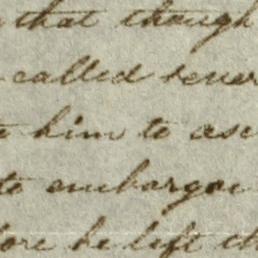 that though
called sever
him to asc
to embargo
fore he left th